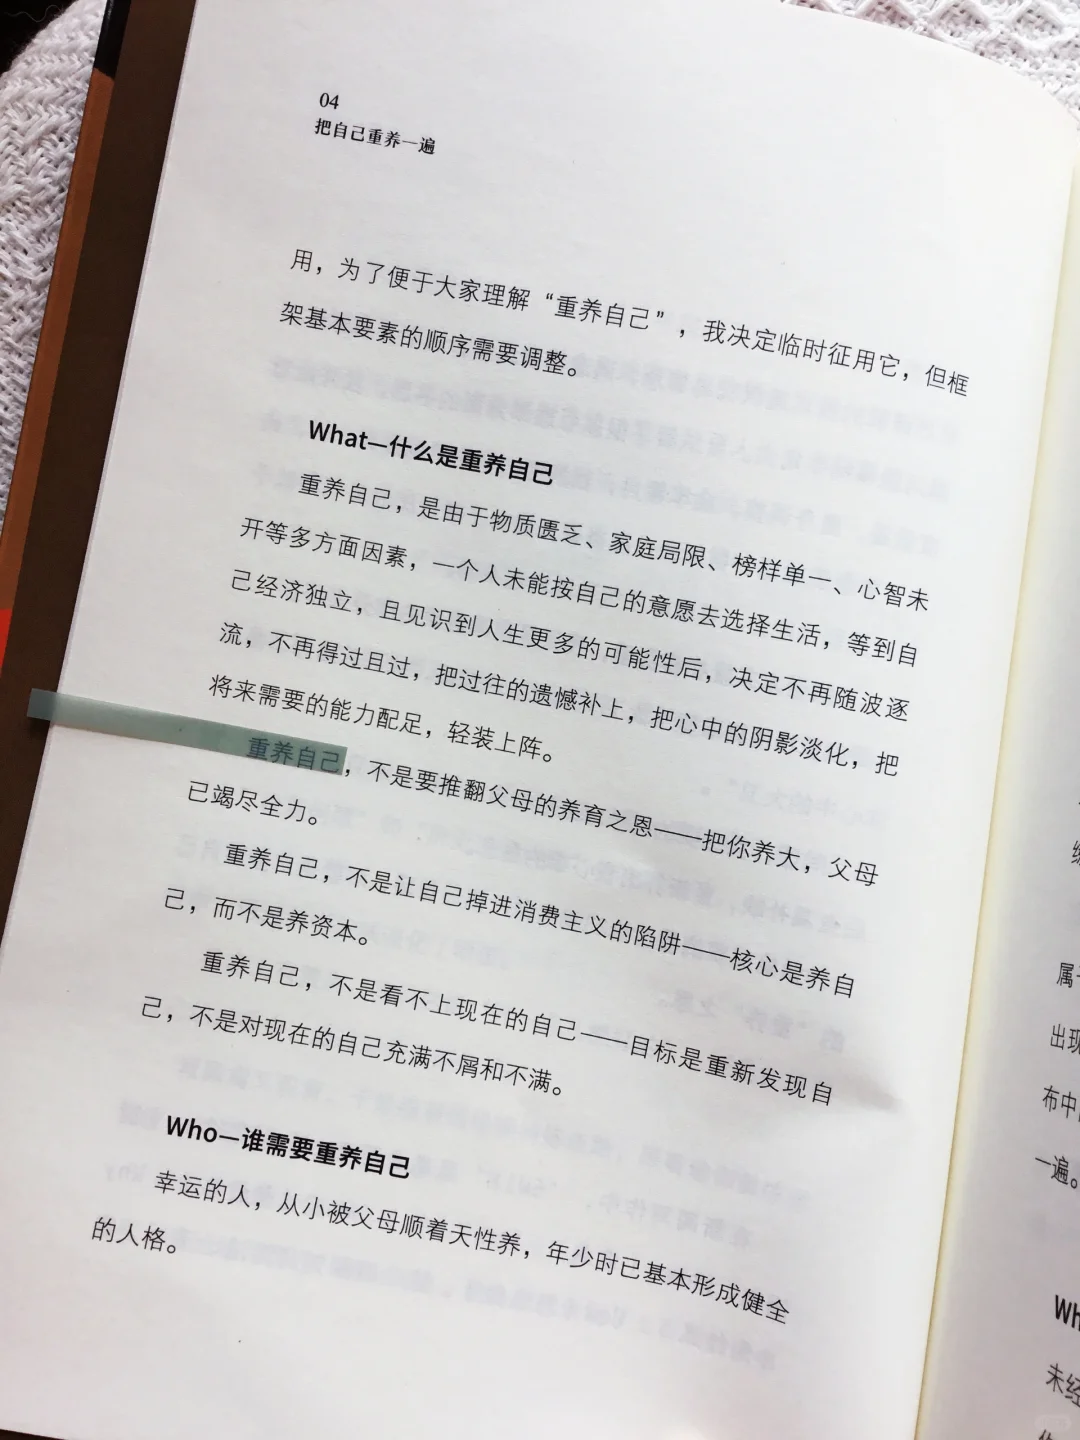 04
把自己重养一遍
用，为了便于大家理解“重养自己”，我决定临时征用它，但框
架基本要素的顺序需要调整。
What—什么是重养自己
重养自己，是由于物质匮乏、家庭局限、榜样单一、心智未
开等多方面因素，一个人未能按自己的意愿去选择生活，等到自
己经济独立，且见识到人生更多的可能性后，决定不再随波逐
流，不再得过且过，把过往的遗憾补上，把心中的阴影淡化，把
将来需要的能力配足，轻装上阵。
重养自己，不是要推翻父母的养育之恩——把你养大，父母
已竭尽全力。
重养自己，不是让自己掉进消费主义的陷阱——核心是养自
己，而不是养资本。
重养自己，不是看不上现在的自己——目标是重新发现自
己，不是对现在的自己充满不屑和不满。
Who—谁需要重养自己
幸运的人，从小被父母顺着天性养，年少时已基本形成健全
的人格。
属
出现
布中
一遍。
Wh
未经